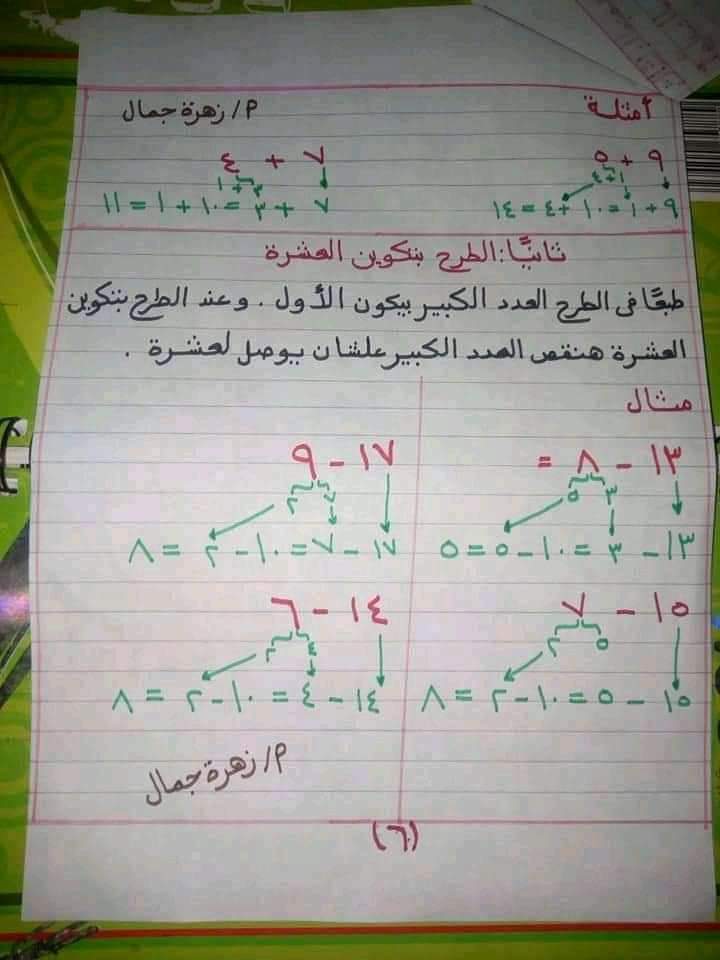 أمثلة
م/ زهرة جمال
٩ + ٥
١ + ٤
٩ + ١ = ١٠ + ٤ = ١٤
٧ + ٤
٣ + ١
٧ + ٣ = ١٠ + ١ = ١١
ثانيًا: الطرح بتكوين العشرة
طبعًا فى الطرح العدد الكبير بيكون الأول . وعند الطرح بتكوين
العشرة هنقص العدد الكبير علشان يوصل لعشرة .
مثال
١٣ - ٨ =
٣ ٥
١٣ - ٣ = ١٠ - ٥ = ٥
١٧ - ٩
٧ ٢
١٧ - ٧ = ١٠ - ٢ = ٨
١٥ - ٧
٥ ٢
١٥ - ٥ = ١٠ - ٢ = ٨
١٤ - ٦
٤ ٢
١٤ - ٤ = ١٠ - ٢ = ٨
م/ زهرة جمال
(٦)